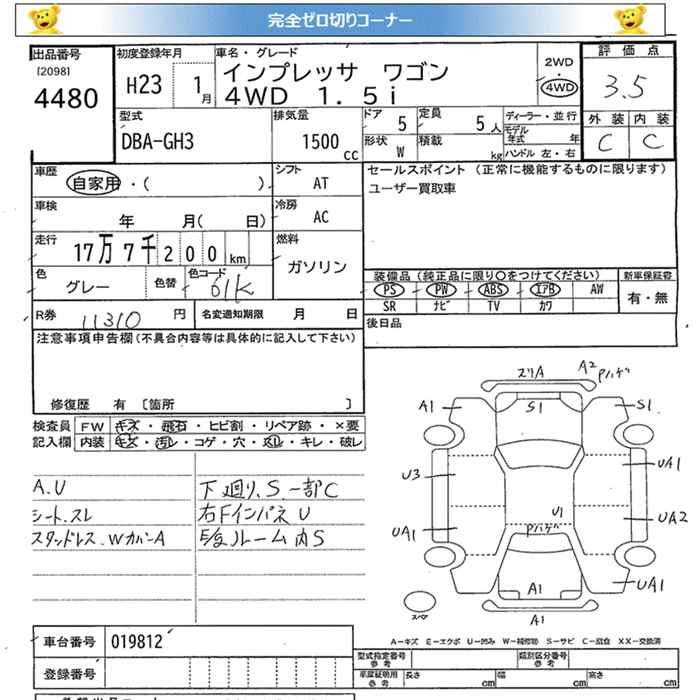 完全ゼロ切りコーナー
出品番号 初度登録年月 車名・グレード 評価点
[2098] 4480
H23 1月
インプレッサ ワゴン
4WD 1.5i
2WD・4WD
3.5
外装 内装
C C
型式 排気量 ドア 5 定員 5人 ディーラー・並行
DBA-GH3 1500cc 形状 W 積載 kg モデル年式 年
ハンドル 左・右
車歴 自家用・( ) シフト AT
セールスポイント (正常に機能するものに限ります)
ユーザー買取車
車検 年 月( 日) 冷房 AC
走行 17万7千200km 燃料 ガソリン
色 グレー 色替 色コード 61K
装備品(純正品に限り○をつけてください) 新車保証書
PS PW ABS エアB AW 有・無
SR ナビ TV カワ
R券 11310円 名変通知期限 月 日
後日品
注意事項申告欄(不具合内容等は具体的に記入して下さい)
修復歴 有 〔箇所 〕
検査員 FW キズ・飛石・ヒビ割・リペア跡・×要
記入欄 内装 キズ・汚レ・コゲ・穴・スレ・キレ・破レ
A.U
シート.スレ
スタッドレス.WカバーA
下廻リ.S.一部C
右FインパネU
ルーム内S
ズリA
A2 Pハゲ
A1 S1 S1
U3 UA1
U1 UA2
UA1 Pハゲ
A1 UA1
スペア A1
A−キズ E−エクボ U−凹み W−補修跡 S−サビ C−腐食 XX−交換済
車台番号 019812
登録番号
型式指定番号 参考 類別区分番号 参考
車庫証明用 参考 長さ cm 幅 cm 高さ cm